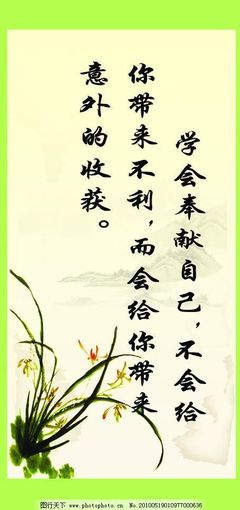 学会奉献自己，不会给
你带来不利，而会给你带来
意外的收获。
图行天下 www.photophoto.cn No.20100519010977000636